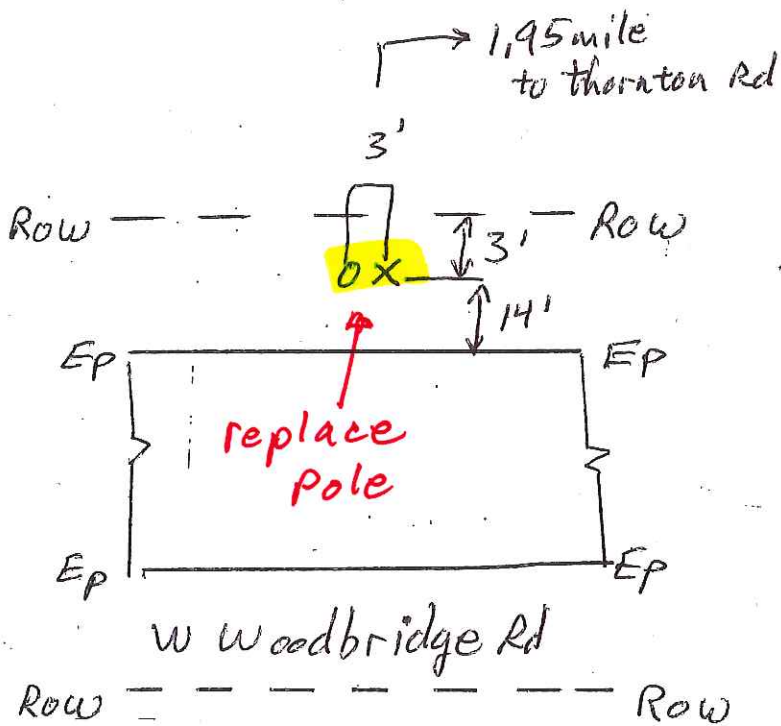 1,95 mile
to thornton Rd
3'
Row Row
3'
O X
14'
Ep Ep
replace
Pole
Ep Ep
W Woodbridge Rd
Row Row